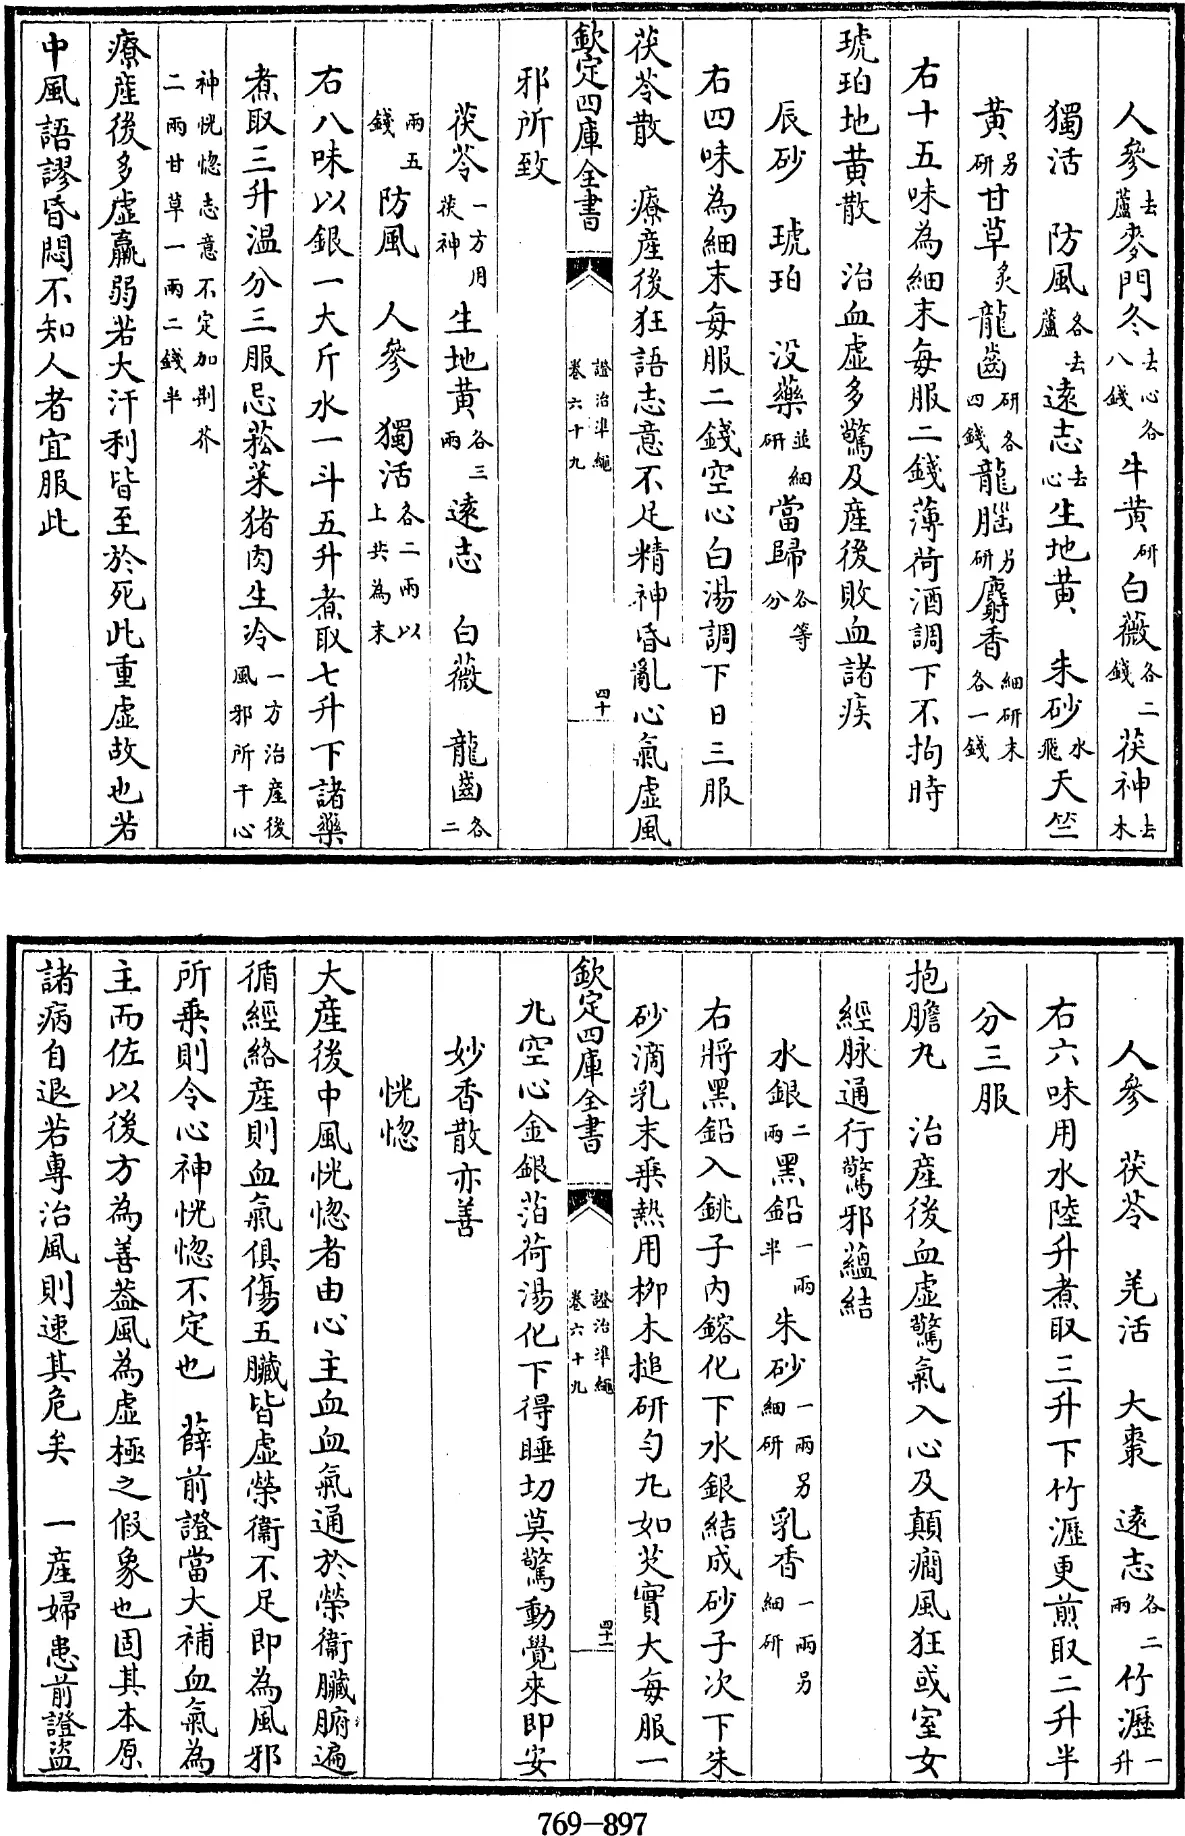 人參去蘆麥門冬去心各八錢牛黃研白薇各二錢茯神去木
獨活　防風各去蘆遠志去心生地黃　朱砂水飛天竺
黃另研甘草炙龍齒研各四錢龍腦另研麝香細研末各一錢
右十五味為細末每服二錢薄荷酒調下不拘時
琥珀地黃散　治血虛多驚及産後敗血諸疾
辰砂　琥珀　沒藥並細研當歸各等分
右四味為細末每服二錢空心白湯調下日三服
茯苓散　療産後狂語志意不足精神昏亂心氣虛風
欽定四庫全書　證治準繩卷六十九　四十
邪所致
茯苓一方用茯神生地黃各三兩遠志　白薇　龍齒各二
兩五錢防風　人參　獨活各二兩以上共為末
右八味以銀一大斤水一斗五升煮取七升下諸藥
煮取三升温分三服忌菘菜猪肉生冷一方治産後風邪所干心
神恍惚志意不定加荆芥二兩甘草一兩二錢半
療産後多虛羸弱若大汗利皆至於死此重虛故也若
中風語謬昏悶不知人者宜服此
人參　茯苓　羌活　大棗　遠志各二兩竹瀝一升
右六味用水陸升煮取三升下竹瀝更煎取二升半
分三服
抱膽丸　治産後血虛驚氣入心及顛癎風狂或室女
經脉通行驚邪蘊結
水銀二兩黑鉛一兩半朱砂一兩另細研乳香一兩另細研
右將黑鉛入銚子内鎔化下水銀結成砂子次下朱
砂滴乳末乘熱用栁木搥研匀丸如芡實大每服一
欽定四庫全書　證治準繩卷六十九　四十一
丸空心金銀箔荷湯化下得睡切莫驚動覺來即安
妙香散亦善
恍惚
大産後中風恍惚者由心主血血氣通於榮衞臟腑遍
循經絡産則血氣俱傷五臟皆虛榮衞不足即為風邪
所乘則令心神恍惚不定也　薛前證當大補血氣為
主而佐以後方為善葢風為虛極之假象也固其本原
諸病自退若專治風則速其危矣　一産婦患前證盜
769—897